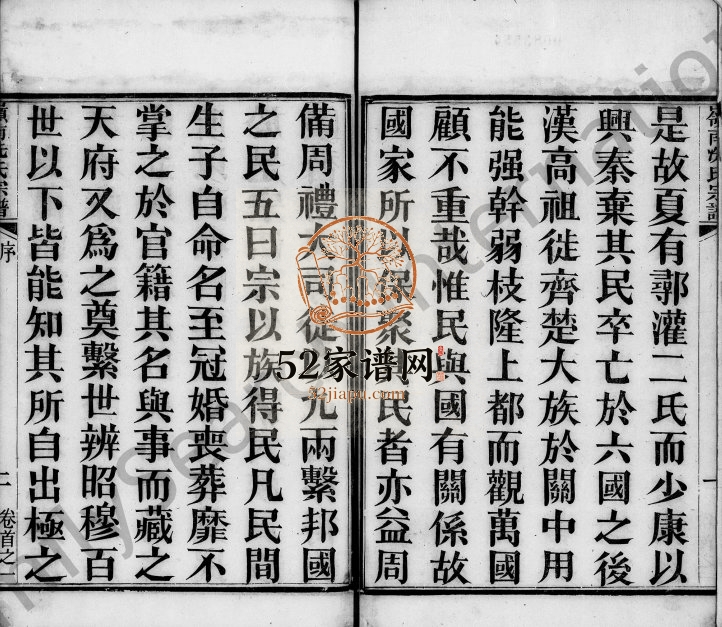 嶺南冼氏宗譜
一
是故夏有鄩灌二氏而少康以
興秦棄其民卒亡於六國之後
漢高祖徙齊楚大族於關中用
能强幹弱枝隆上都而觀萬國
顧不重哉惟民與國有關係故
國家所以保聚民者亦益周
備周禮大司徒九兩繫邦國
之民五曰宗以族得民凡民間
生子自命名至冠婚喪葬靡不
掌之於官籍其名與事而藏之
天府又爲之奠繫世辨昭穆百
世以下皆能知其所自出極之
嶺南冼氏宗譜
序
二
卷首之一
52家谱网
52jiapu.com